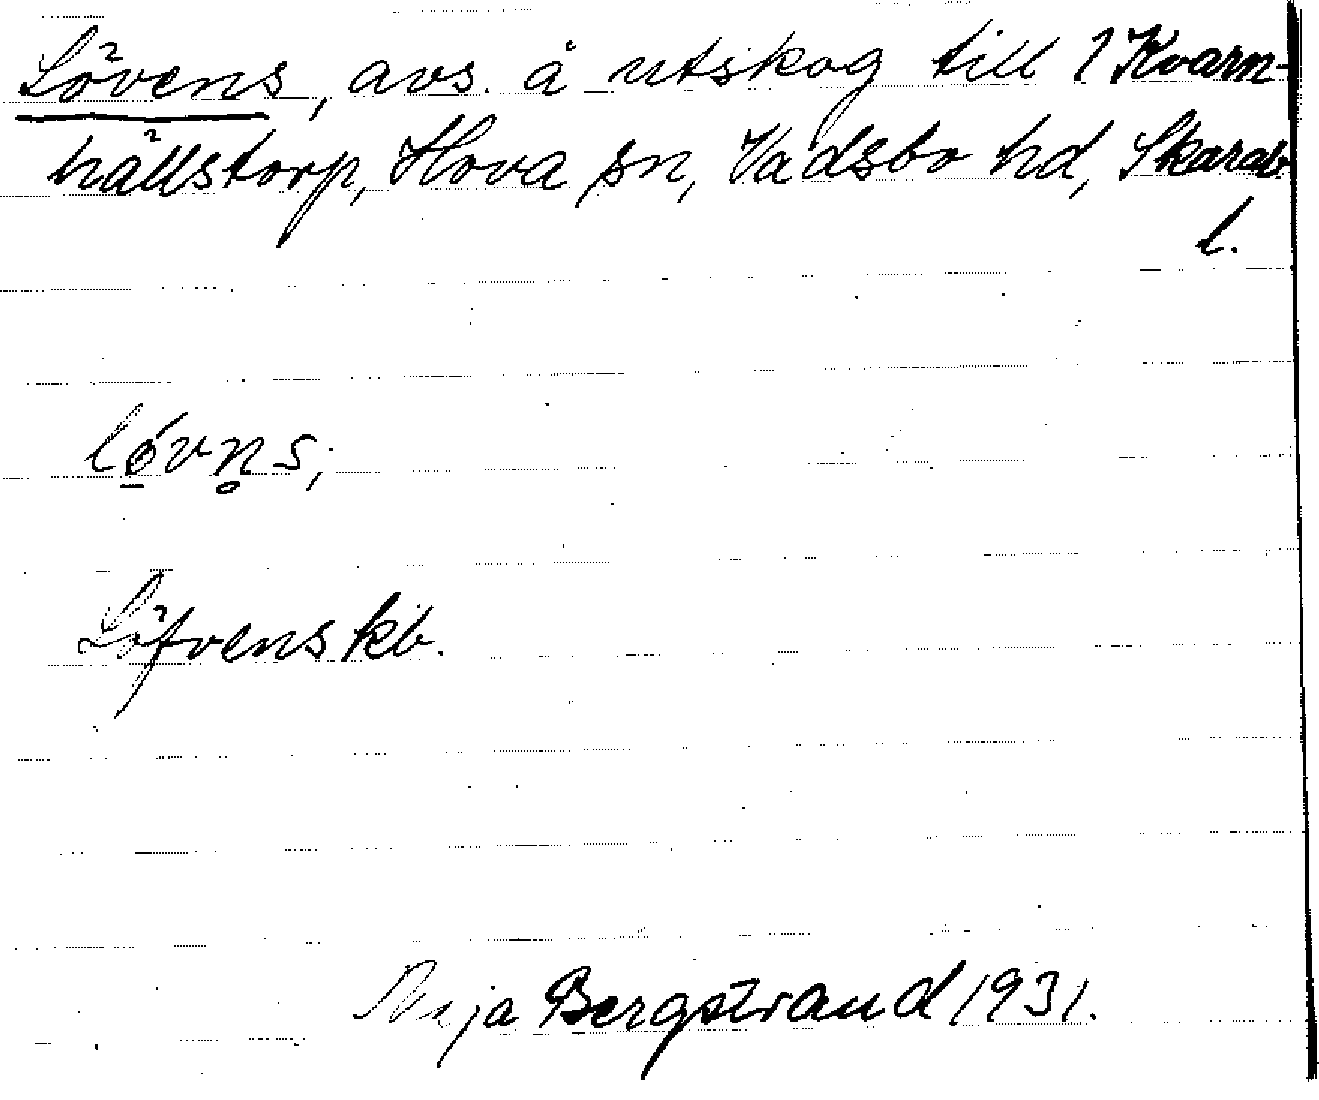 Lövens, avs. å utskog till 1 Kvarn-
hällstorp, Hova sn, Vadsbo hd, Skarab.
l.
lǿvn̥s;
Löfvens kb.
Maja Bergstrand 1931.